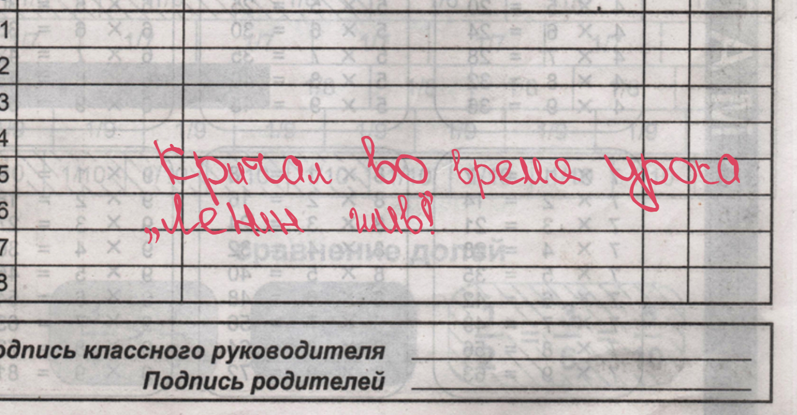 1
2
3
4
5
6
7
8
Кричал во время урока
„Ленин жив"
одпись классного руководителя
Подпись родителей